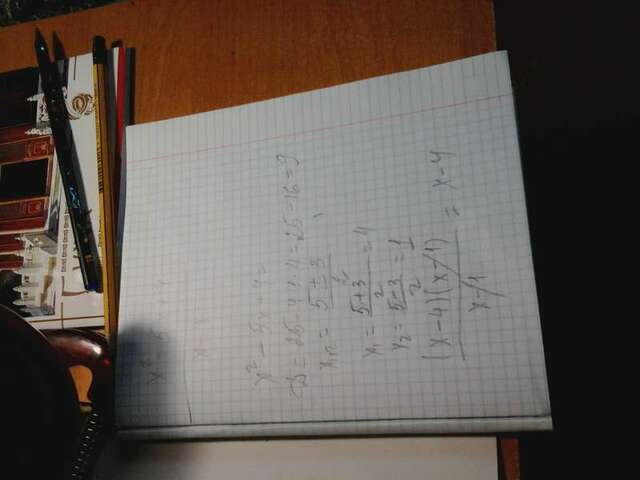 x² - 5x + 4 =
D = 25 - 4·1·4 = 25 - 16 = 9
x₁,₂ = 5 ± 3 / 2
x₁ = 5+3 / 2 = 4
x₂ = 5-3 / 2 = 1
(x-4)(x-1) / x-1 = x-4